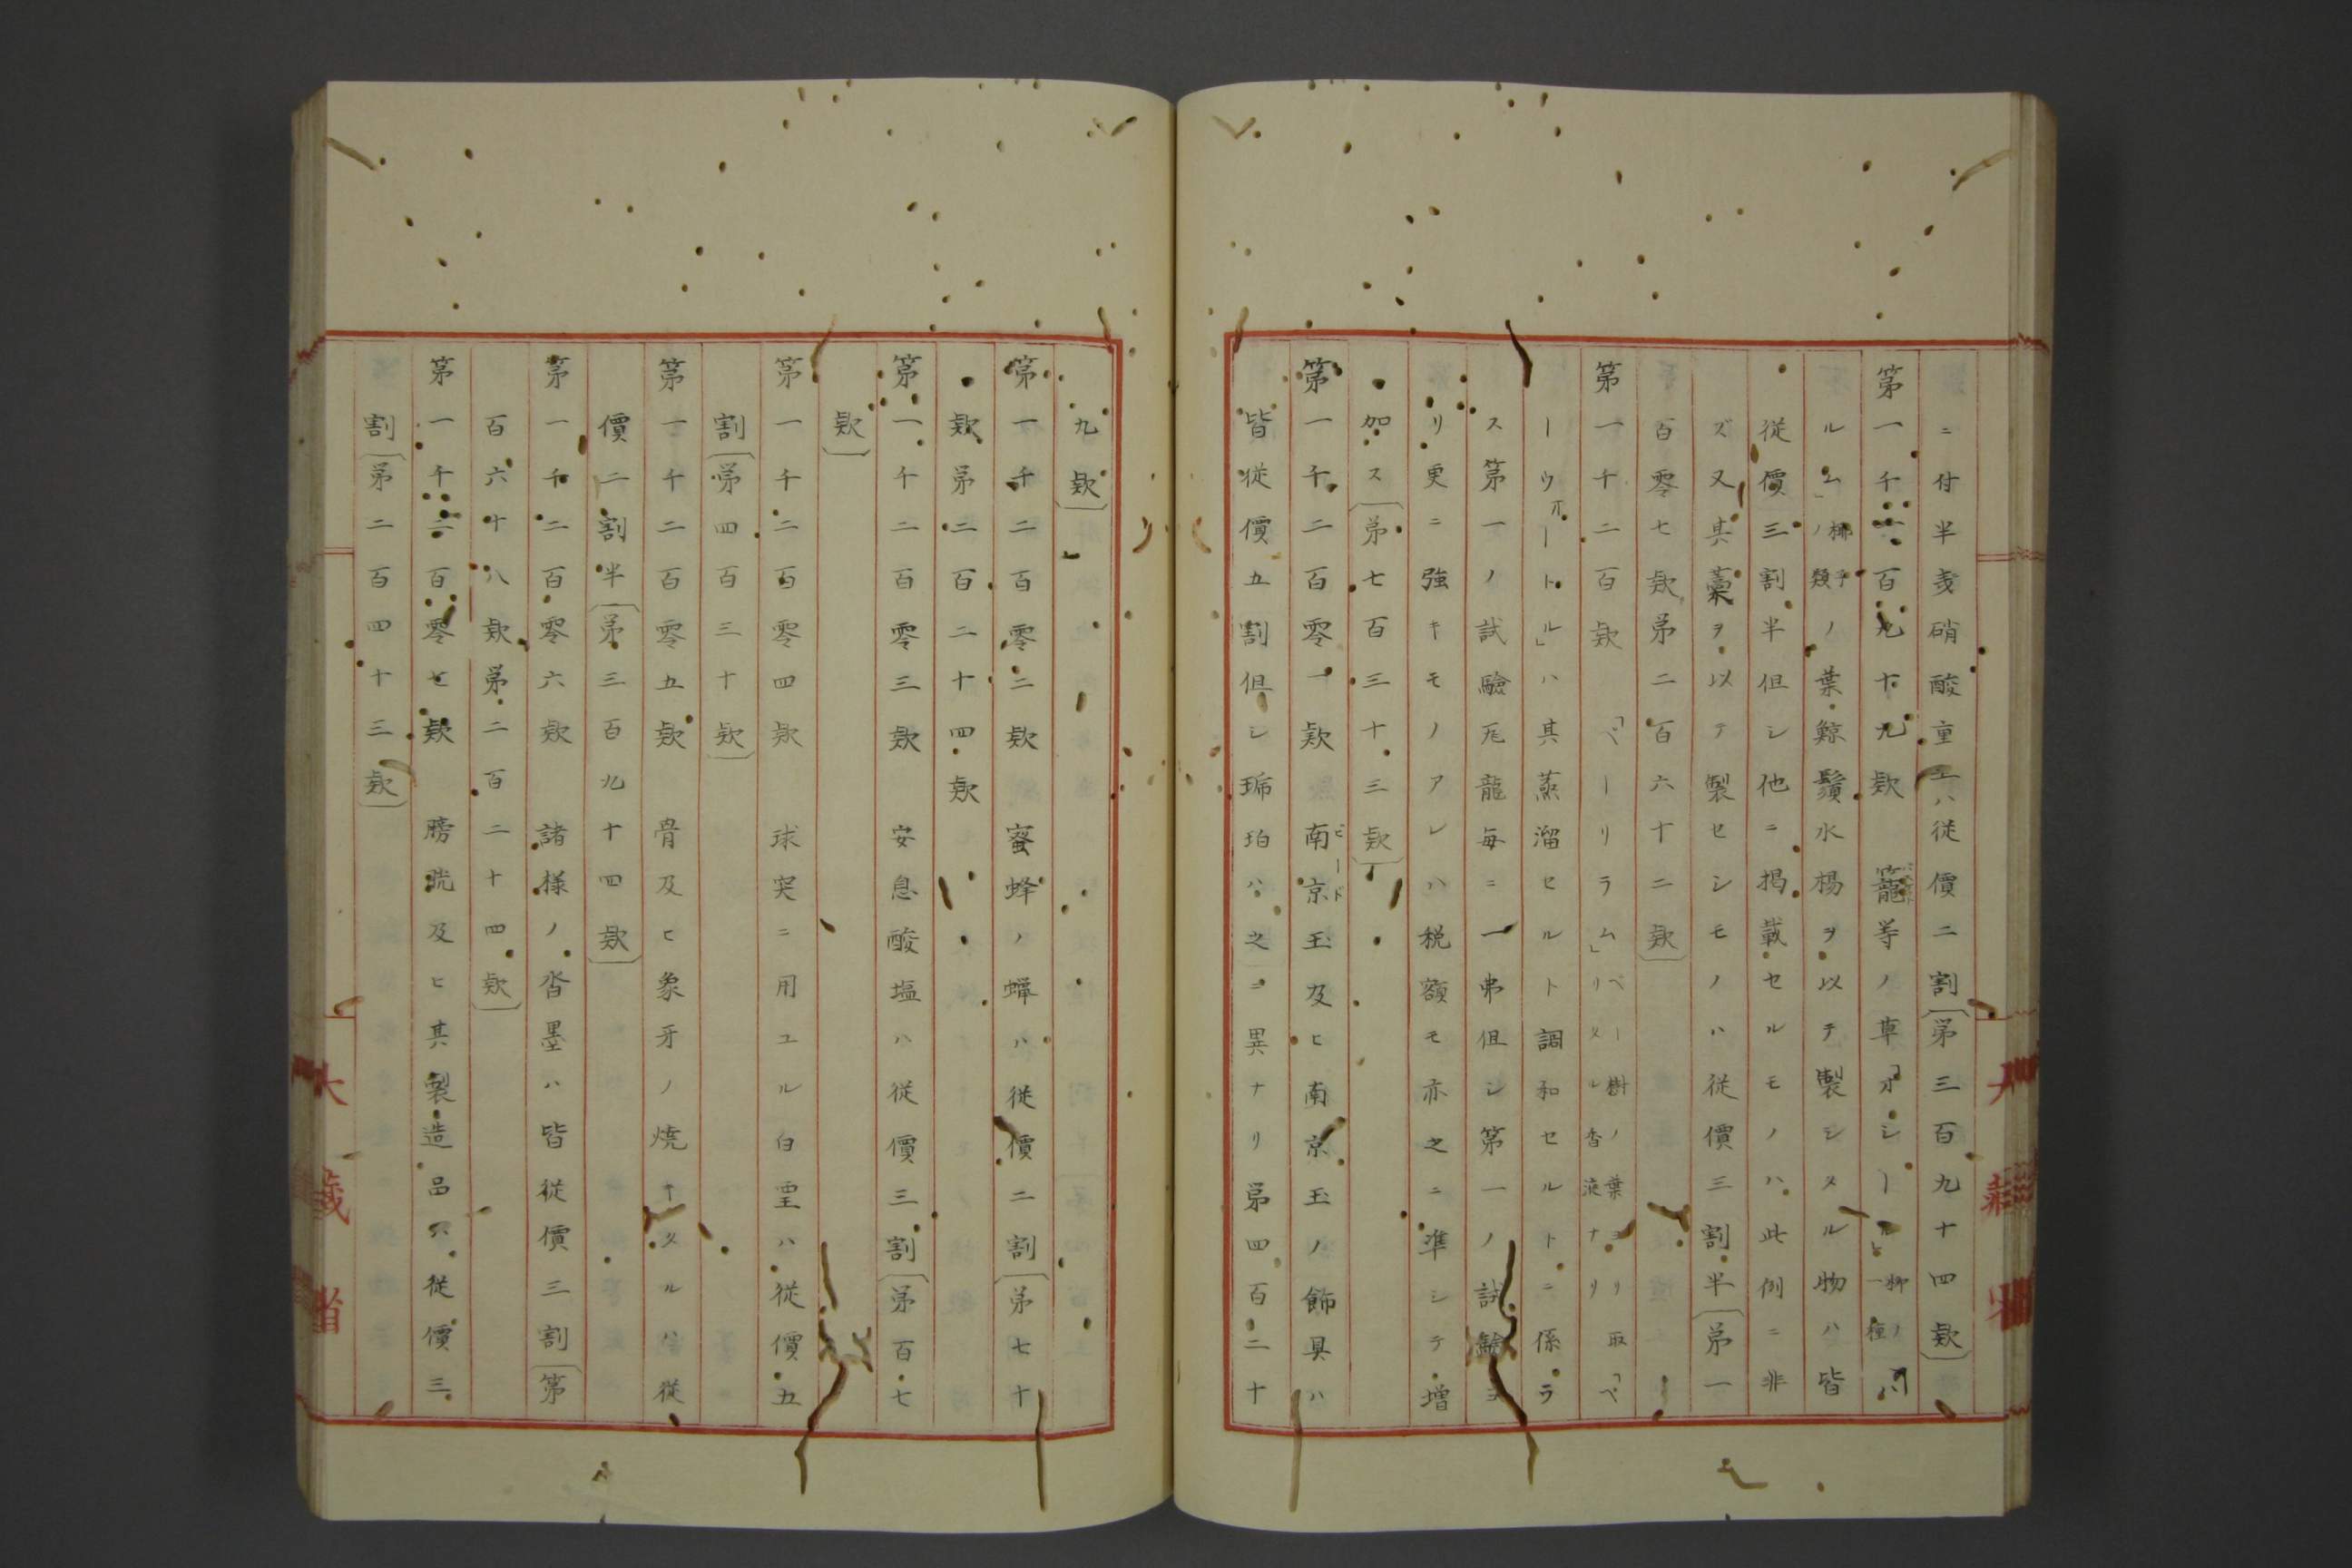 ニ付半麦硝酸重土ハ従價二割〔第三百九十四款〕
第一千百九十九款 籠等ノ草「オシール」柳ノ一種「パ
ルム」椰子ノ類ノ葉鯨鬚水楊ヲ以テ製シタル物ハ皆
從價三割半但シ他ニ掲載セルモノハ此例ニ非
ズ又其藁ヲ以テ製セシモノハ従價三割半〔第一
百零七款第二百六十二款〕
第一千二百款 「ベーリラム」ベー樹ノ葉ヨリ取リタル香液ナリ「ベ
ーウオートル」ハ其蒸溜セルト調和セルトニ係ラ
ス第一ノ試驗瓦龍毎ニ一弗但シ第一ノ試驗ヨ
リ更ニ強キモノアレハ税額モ亦之ニ準シテ増
加ス〔第七百三十三款〕
第一千二百零一款 南京玉ビード及ヒ南京玉ノ飾具ハ
皆従價五割但シ琥珀ハ之ニ異ナリ第四百二十
九款〕
第一千二百零二款 蜜蜂ノ蠟ハ従價二割〔第七十
款第二百二十四款
第一千二百零三款 安息酸塩ハ従價三割〔第百七
款〕
第一千二百零四款 球突ニ用ユル白堊ハ従價五
割〔第四百三十款〕
第一千二百零五款 骨及ヒ象牙ノ焼キタルハ従
價二割半〔第三百九十四款〕
第一千二百零六款 諸様ノ沓墨ハ皆従價三割〔第
百六十八款第二百二十四款〕
第一千二百零七款 膀胱及ヒ其製造品ハ従價三
割〔第二百四十三款〕
大藏省